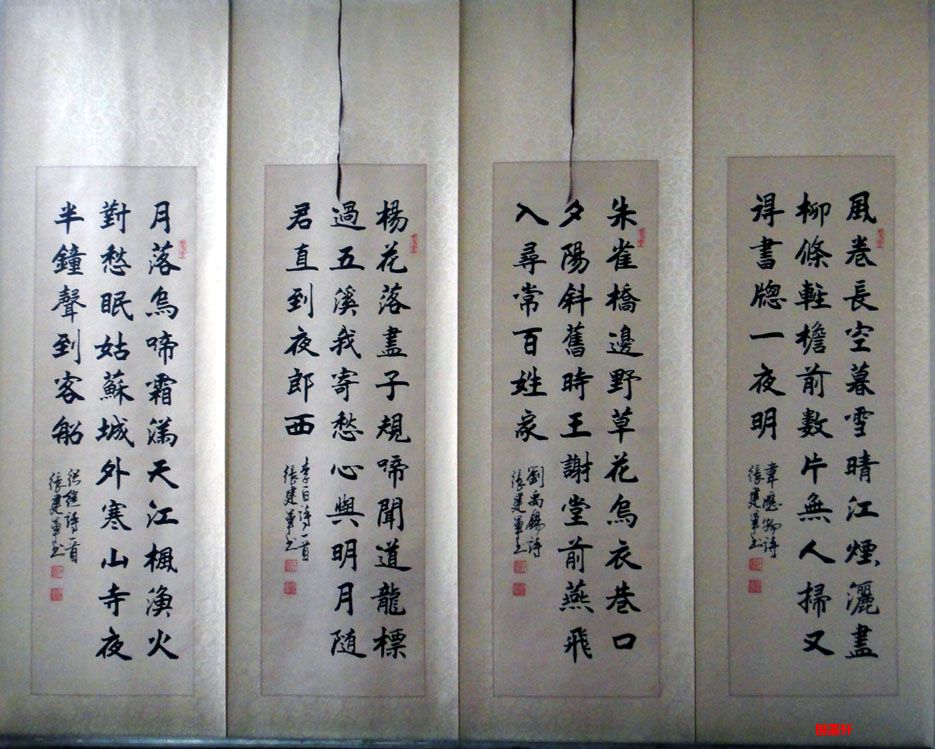 風卷長空暮雪晴江煙灑盡
柳條輕檐前數片無人掃又
得書牕一夜明
韋應物詩
張建軍書
朱雀橋邊野草花烏衣巷口
夕陽斜舊時王謝堂前燕飛
入尋常百姓家
劉禹錫詩
張建軍書
楊花落盡子規啼聞道龍標
過五溪我寄愁心與明月隨
君直到夜郎西
李白詩一首
張建軍書
月落烏啼霜滿天江楓漁火
對愁眠姑蘇城外寒山寺夜
半鐘聲到客船
張繼詩一首
張建軍書